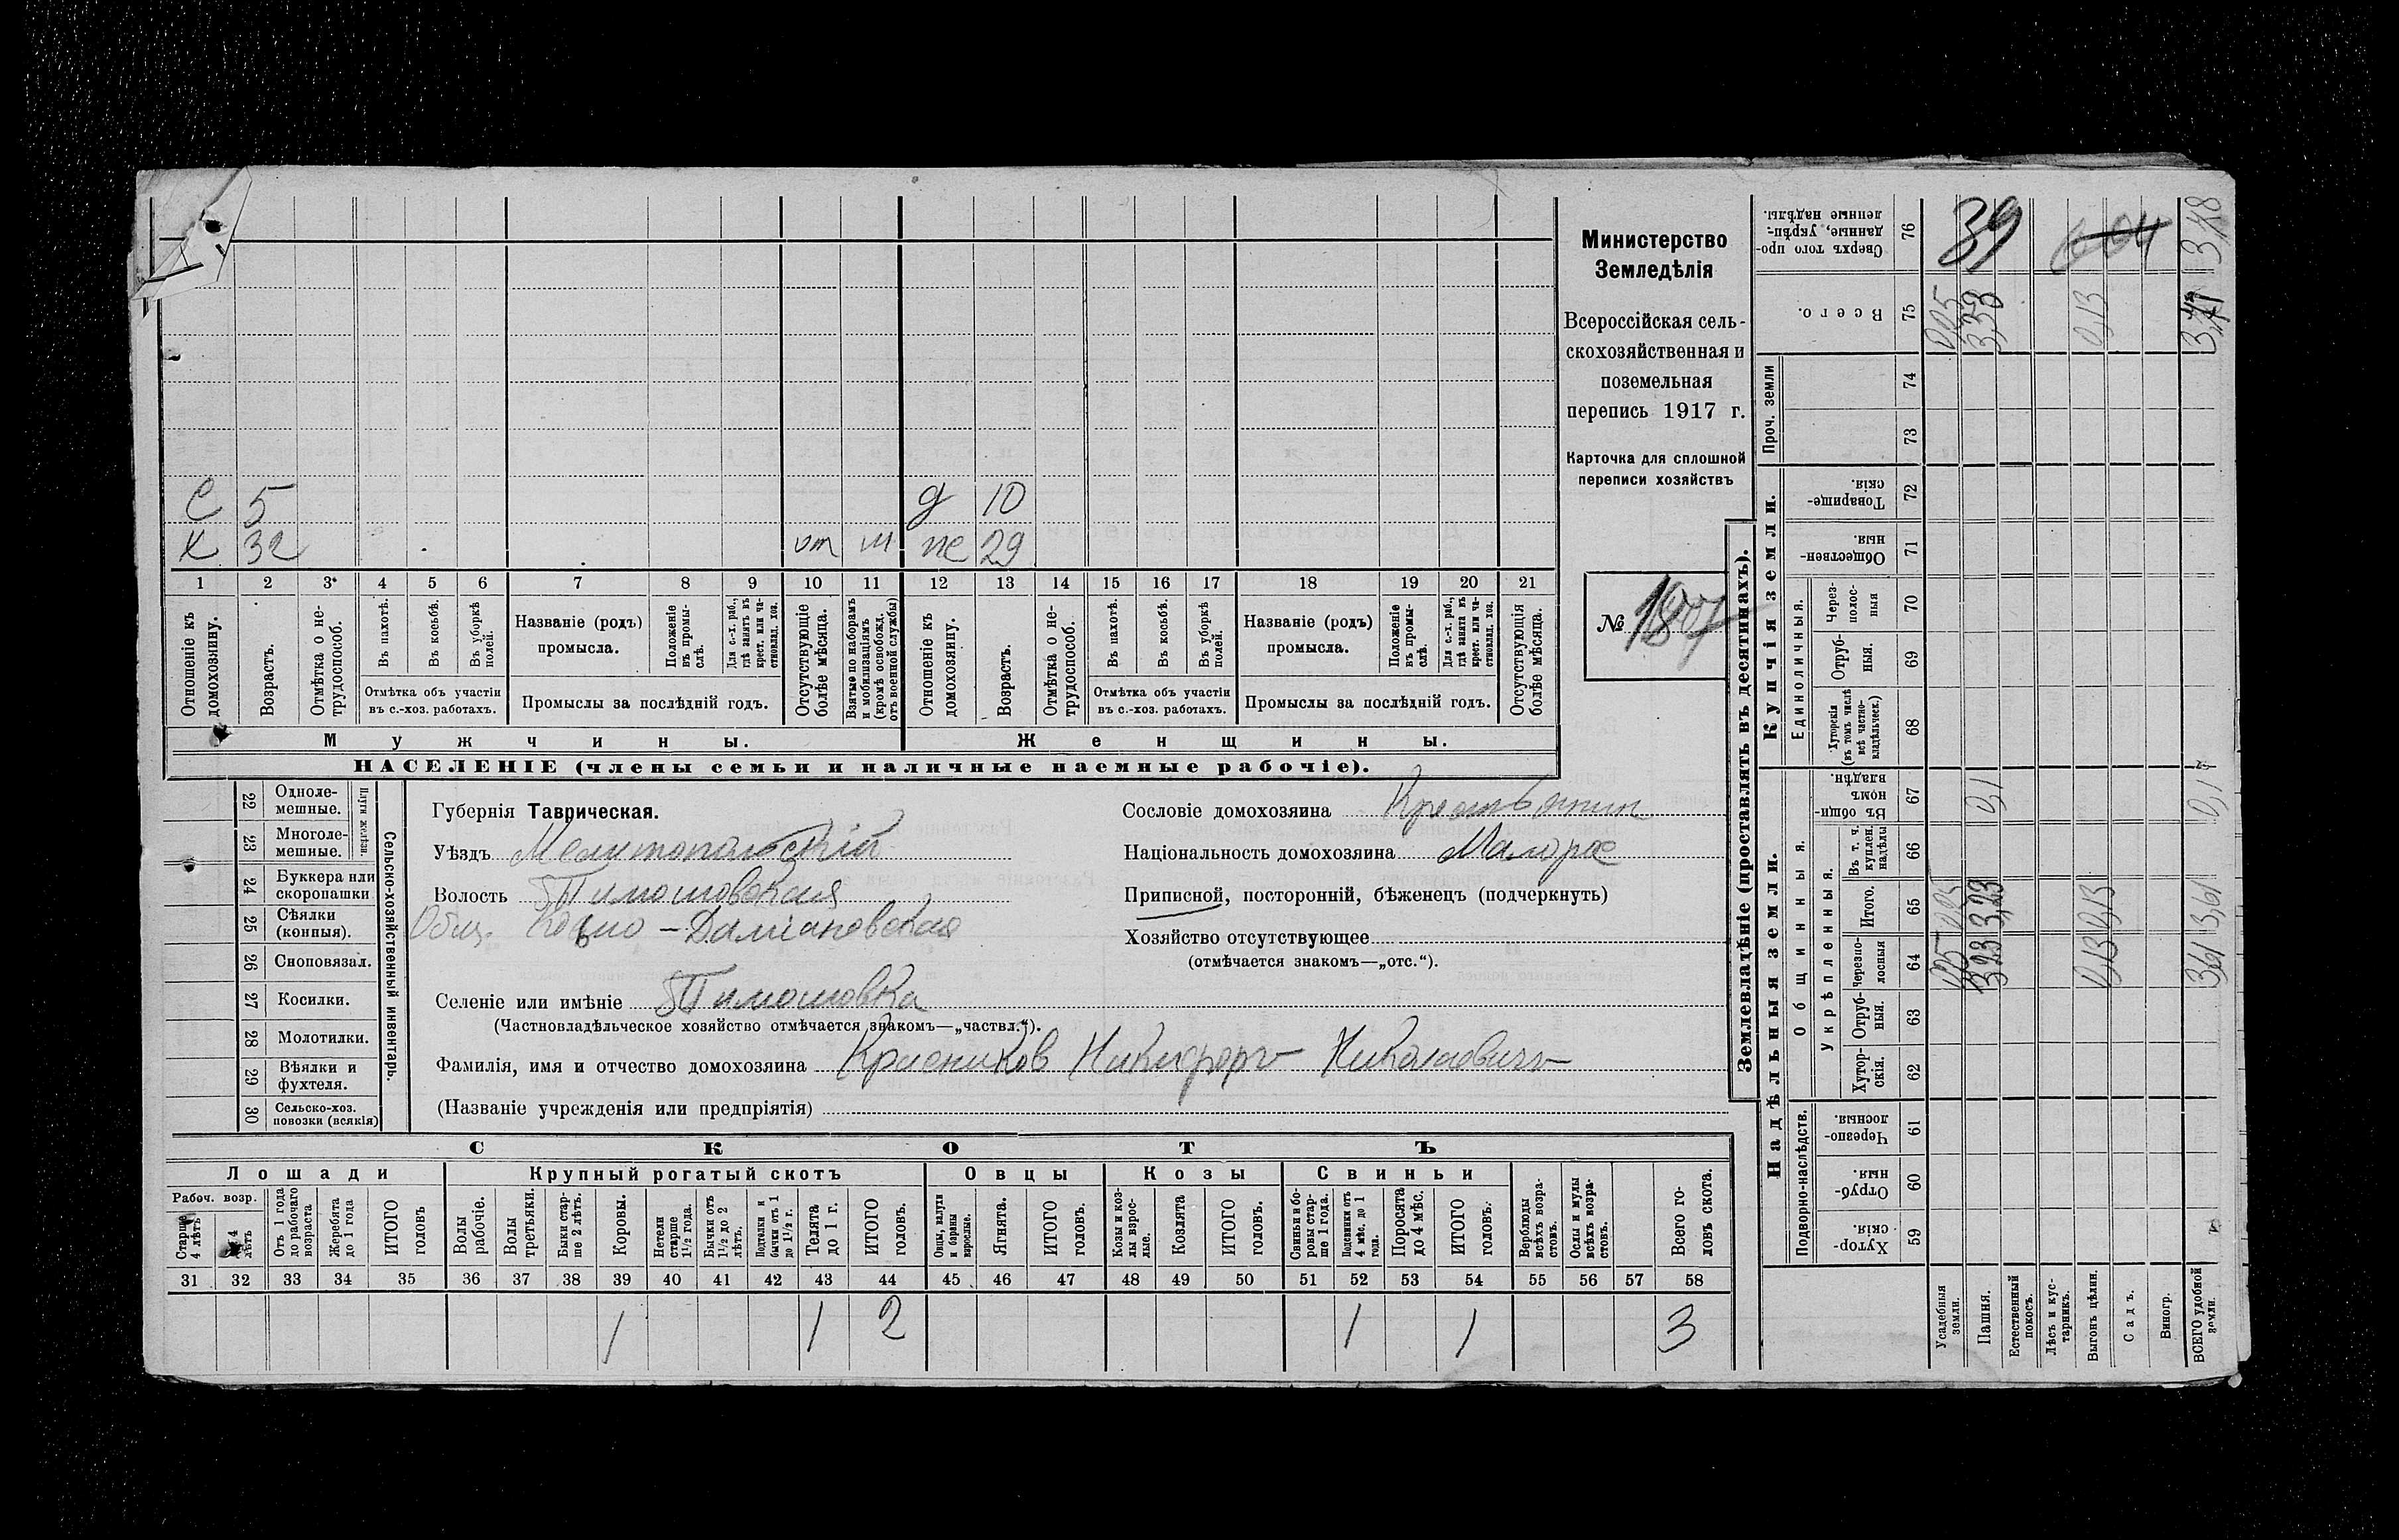 Министерство
Земледѣлія
Всероссійская сель-
скохозяйственная и
поземельная
перепись 1917 г.
Карточка для сплошной
переписи хозяйствъ
№ 1807
С 5 д 10
Х 32 от м же 29
1 2 3* 4 5 6 7 8 9 10 11 12 13 14 15 16 17 18 19 20 21
Отношеніе къ домохозяину.
Возрастъ.
Отмѣтка о не-трудоспособ.
Въ пахотѣ.
Въ косьбѣ.
Въ уборкѣ полей.
Отмѣтка объ участіи въ с.-хоз. работахъ.
Названіе (родъ) промысла.
Положеніе въ промы-слѣ.
Для с.-х. раб., гдѣ занятъ въ крест. или ча-стновлад. хоз.
Промыслы за послѣдній годъ.
Отсутствующіе болѣе мѣсяца.
Взятые по наборамъ и мобилизаціямъ (кромѣ освобожд. отъ военной службы)
Отношеніе къ домохозяину.
Возрастъ.
Отмѣтка о не-трудоспособ.
Въ пахотѣ.
Въ косьбѣ.
Въ уборкѣ полей.
Отмѣтка объ участіи въ с.-хоз. работахъ.
Названіе (родъ) промысла.
Положеніе въ промы-слѣ.
Для с.-х. раб., гдѣ занята въ крест. или ча-стновлад. хоз.
Промыслы за послѣдній годъ.
Отсутствующія болѣе мѣсяца.
Мужчины. Женщины.
НАСЕЛЕНІЕ (члены семьи и наличные наемные рабочіе).
Сельско-хозяйственный инвентарь.
Плуги желѣзн.
22 Одноле-мешные.
23 Многоле-мешные.
24 Буккера или скоропашки
25 Сѣялки (конныя).
26 Сноповязал.
27 Косилки.
28 Молотилки.
29 Вѣялки и фухтеля.
30 Сельско-хоз. повозки (всякія)
Губернія Таврическая.
Уѣздъ Мелитопольскій
Волость Тимошовская
Общ. Козьмо-Даміановская
Селеніе или имѣніе Тимошовка
(Частновладѣльческое хозяйство отмѣчается знакомъ—„частвл.“).
Фамилія, имя и отчество домохозяина Красников Никифоръ Николаевичъ
(Названіе учрежденія или предпріятія)
Сословіе домохозяина Крестьянин
Національность домохозяина Малорос
Приписной, посторонній, бѣженецъ (подчеркнуть)
Хозяйство отсутствующее
(отмѣчается знакомъ—„отс.“).
СКОТЪ
Лошади Крупный рогатый скотъ Овцы Козы Свиньи
Рабоч. возр.
Старше 4 лѣтъ
4 лѣтъ
Отъ 1 года до рабочаго возраста
Жеребята до 1 года
ИТОГО головъ
Волы рабочіе.
Волы третьяки.
Быки стар-ше 2 лѣтъ.
Коровы.
Нетели старше 1½ года.
Бычки отъ 1½ до 2 лѣтъ.
Подтелки и бычки отъ 1 до 1½ г.
Телята до 1 г.
ИТОГО головъ.
Овцы, валухи и бараны взрослые.
Ягнята.
ИТОГО головъ.
Козы и коз-лы взрос-лые.
Козлята
ИТОГО головъ.
Свиньи и бо-ровы стар-ше 1 года.
Подсвинки отъ 4 мѣс. до 1 года.
Поросята до 4 мѣс.
ИТОГО головъ.
Верблюды всѣхъ возра-стовъ.
Ослы и мулы всѣхъ возра-стовъ.
Всего го-ловъ скота.
31 32 33 34 35 36 37 38 39 40 41 42 43 44 45 46 47 48 49 50 51 52 53 54 55 56 57 58
1 1 2 1 1 3
Землевладѣніе (проставлять въ десятинахъ).
Надѣльныя земли.
Купчія земли.
Проч. земли
Подворно-наслѣдств.
Общинныя.
Укрѣпленныя.
Единоличныя.
Хутор-скія. 59
Отруб-ныя. 60
Черезпо-лосныя 61
Хутор-скія. 62
Отруб-ныя. 63
Черезпо-лосныя 64
Итого. 65
Въ т. ч. куплен. надѣлы 66
Въ общин-номъ владѣн. 67
Хуторскія (въ томъ числѣ всѣ частно-владѣльческ.) 68
Отруб-ныя. 69
Через-полос-ныя 70
Обществен-ныя. 71
Товарище-скія. 72
73
74
Всего. 75
Сверхъ того про-данные, укрѣп-ленные надѣлы. 76
Усадебныя земли. 0,05
Пашня. 3,23 3,23 0,1 3,33
Естественный покосъ.
Лѣсъ и кус-тарникъ.
Выгонъ цѣлин. 0,13 0,13 0,13
Садъ.
Виногр.
ВСЕГО удобной земли. 3,61 3,61 0,1 3,18
39